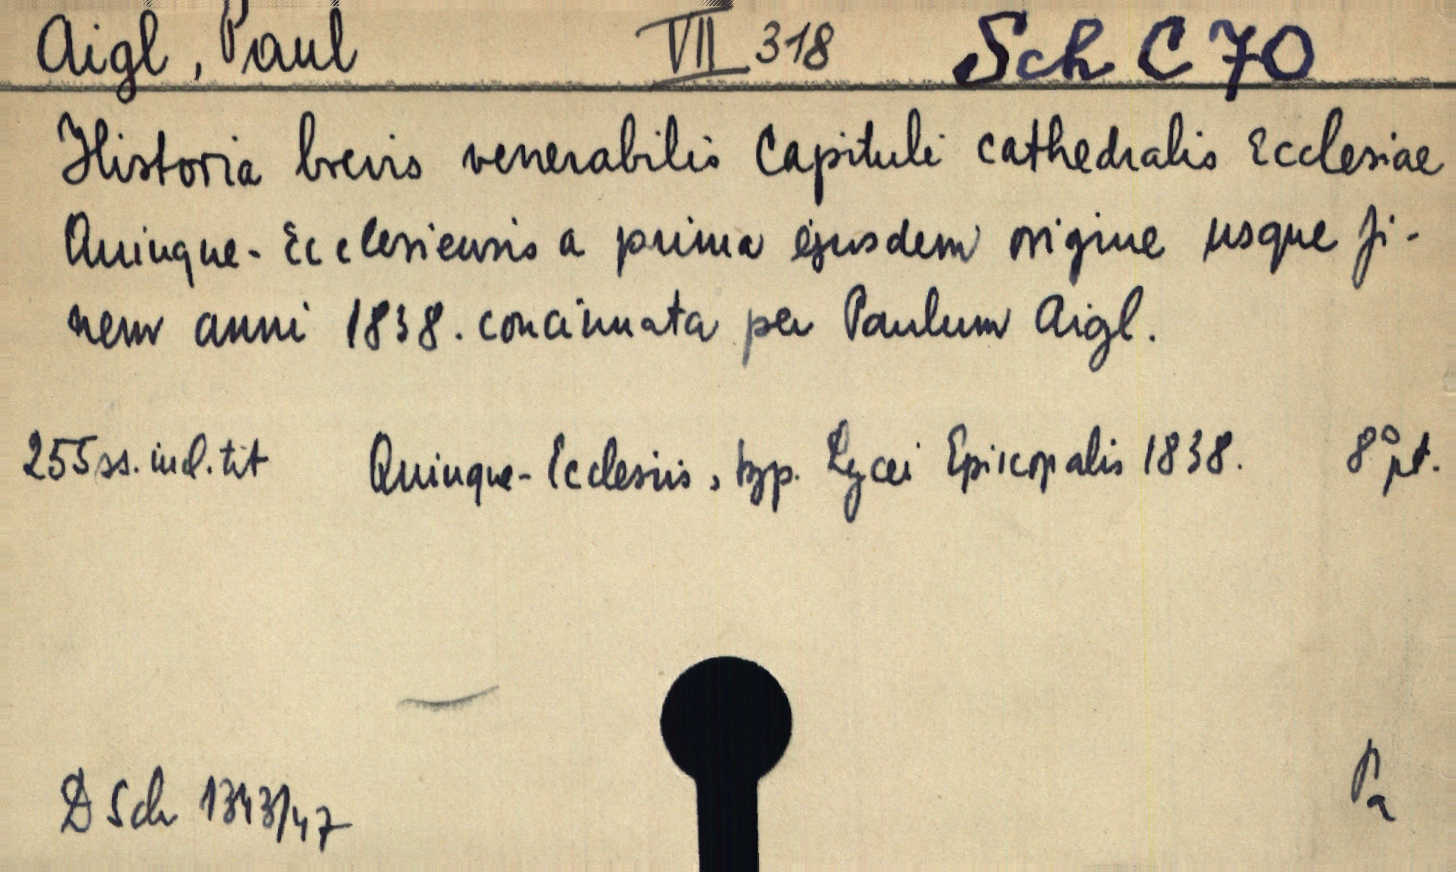 Aigl, Paul VII 318 Sch C 70
Historia brevis venerabilis Capituli cathedralis Ecclesiae
Quinque-Ecclesiensis a prima ejusdem origine usque fi-
nem anni 1838. concinnata per Paulum Aigl.
255 ss. incl. tit Quinque-Ecclesiis, typ. Lycei Episcopalis 1838. 8° pt.
D Sch 1343/47 Pa